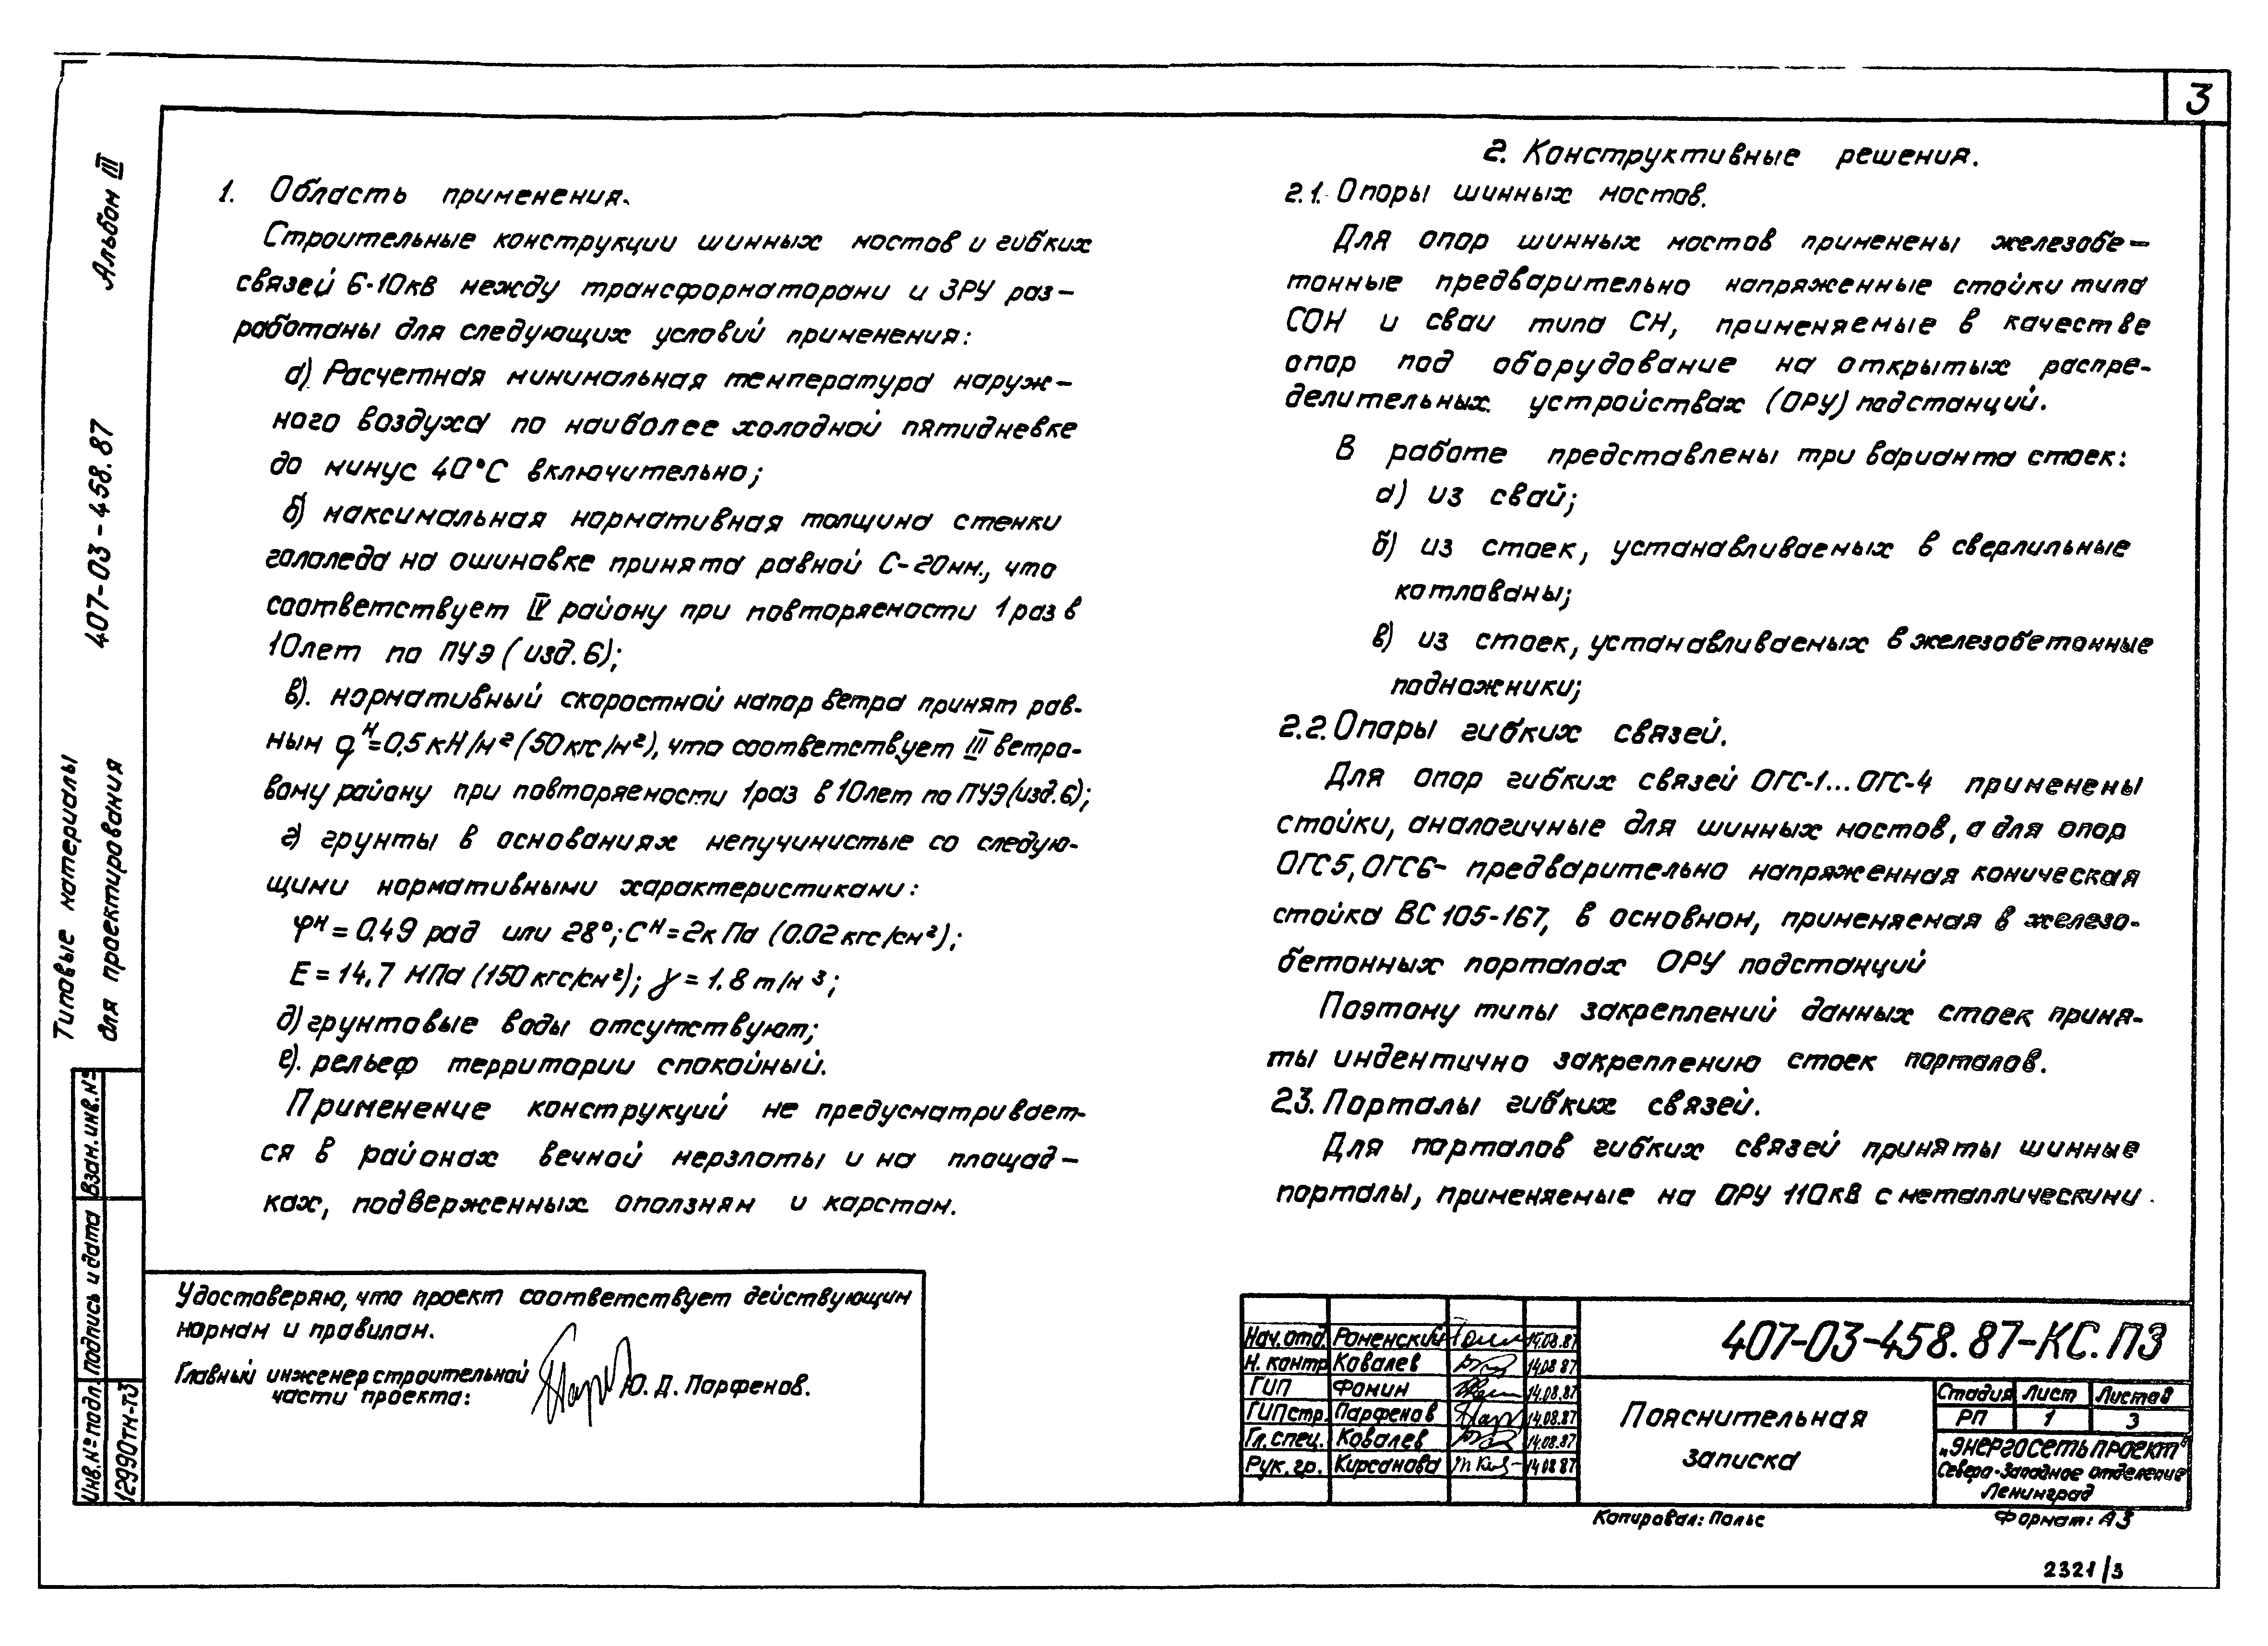 3
Альбом III
407-03-458.87
Типовые материалы
для проектирования
1. Область применения.
Строительные конструкции шинных мостов и гибких
связей 6-10кв между трансформаторами и ЗРУ раз-
работаны для следующих условий применения:
а) Расчетная минимальная температура наруж-
ного воздуха по наиболее холодной пятидневке
до минус 40°С включительно;
б) максимальная нормативная толщина стенки
гололеда на ошиновке принята равной С-20мм., что
соответствует IV району при повторяемости 1 раз в
10лет по ПУЭ (изд.6);
в). нормативный скоростной напор ветра принят рав-
ным qᴴ=0,5кН/м²(50кгс/м²), что соответствует III ветро-
вому району при повторяемости 1раз в 10лет по ПУЭ(изд.6);
г) грунты в основаниях непучинистые со следую-
щими нормативными характеристиками:
φᴴ=0.49 рад или 28°; Сᴴ=2кПа (0.02кгс/см²);
Е=14,7 МПа (150кгс/см²); γ=1.8т/м³;
д) грунтовые воды отсутствуют;
е). рельеф территории спокойный.
Применение конструкций не предусматривает-
ся в районах вечной мерзлоты и на площад-
ках, подверженных оползням и карстам.
2. Конструктивные решения.
2.1. Опоры шинных мостов.
Для опор шинных мостов применены железобе-
тонные предварительно напряженные стойки типа
СОН и сваи типа СН, применяемые в качестве
опор под оборудование на открытых распре-
делительных устройствах (ОРУ) подстанций.
В работе представлены три варианта стоек:
а) из свай;
б) из стоек, устанавливаемых в сверлильные
котлованы;
в) из стоек, устанавливаемых в железобетонные
подножники;
2.2. Опоры гибких связей.
Для опор гибких связей ОГС-1...ОГС-4 применены
стойки, аналогичные для шинных мостов, а для опор
ОГС5, ОГС6- предварительно напряженная коническая
стойка ВС105-167, в основном, применяемая в железо-
бетонных порталах ОРУ подстанций
Поэтому типы закреплений данных стоек приня-
ты индентично закреплению стоек порталов.
2.3. Порталы гибких связей.
Для порталов гибких связей приняты шинные
порталы, применяемые на ОРУ 110кВ с металлическими
Удостоверяю, что проект соответствует действующим
нормам и правилам.
Главный инженер строительной
части проекта: Ю. Д. Парфенов.
Взам.инв.№
Подпись и дата
Инв.№подл.
12990тм-т3
Нач.отд. Роменский 14.08.87
Н. контр Ковалев 14.08.87
ГИП Фомин 14.08.87
ГИПстр. Парфенов 14.08.87
Гл.спец. Ковалев 14.08.87
Рук. гр. Кирсанова 14.08.87
407-03-458.87-КС.ПЗ
Пояснительная
записка
Стадия Лист Листов
РП 1 3
„Энергосетьпроект"
Северо-Западное отделение
Ленинград
Копировал: Польс
Формат: А3
2321/3